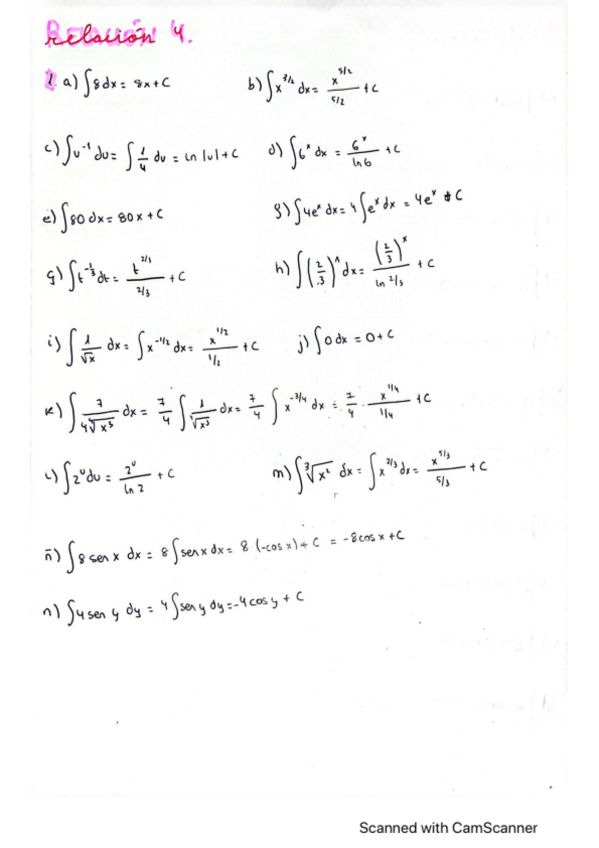 Relación 4.
1. a) ∫8dx = 8x + C b) ∫x^{3/2} dx = x^{5/2}/(5/2) + C
c) ∫u^{-1} du = ∫1/u du = ln |u| + C d) ∫6^x dx = 6^x/ln 6 + C
e) ∫80 dx = 80x + C f) ∫4e^x dx = 4∫e^x dx = 4e^x + C
g) ∫t^{-1/3} dt = t^{2/3}/(2/3) + C h) ∫(2/3)^x dx = (2/3)^x/ln 2/3 + C
i) ∫1/√x dx = ∫x^{-1/2} dx = x^{1/2}/(1/2) + C j) ∫0 dx = 0 + C
k) ∫7/(4∜x³) dx = 7/4 ∫1/∜x³ dx = 7/4 ∫x^{-3/4} dx = 7/4 · x^{1/4}/(1/4) + C
l) ∫2^u du = 2^u/ln 2 + C m) ∫∛x² dx = ∫x^{2/3} dx = x^{5/3}/(5/3) + C
ñ) ∫8 sen x dx = 8∫sen x dx = 8 (-cos x) + C = -8cos x + C
n) ∫4 sen y dy = 4∫sen y dy = -4 cos y + C
Scanned with CamScanner